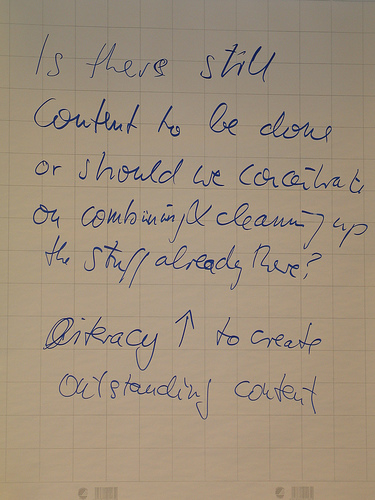 Is there still
Content to be done
or should we concentrate
on combining & cleaning up
the stuff already there?
Literacy ↑ to create
outstanding content